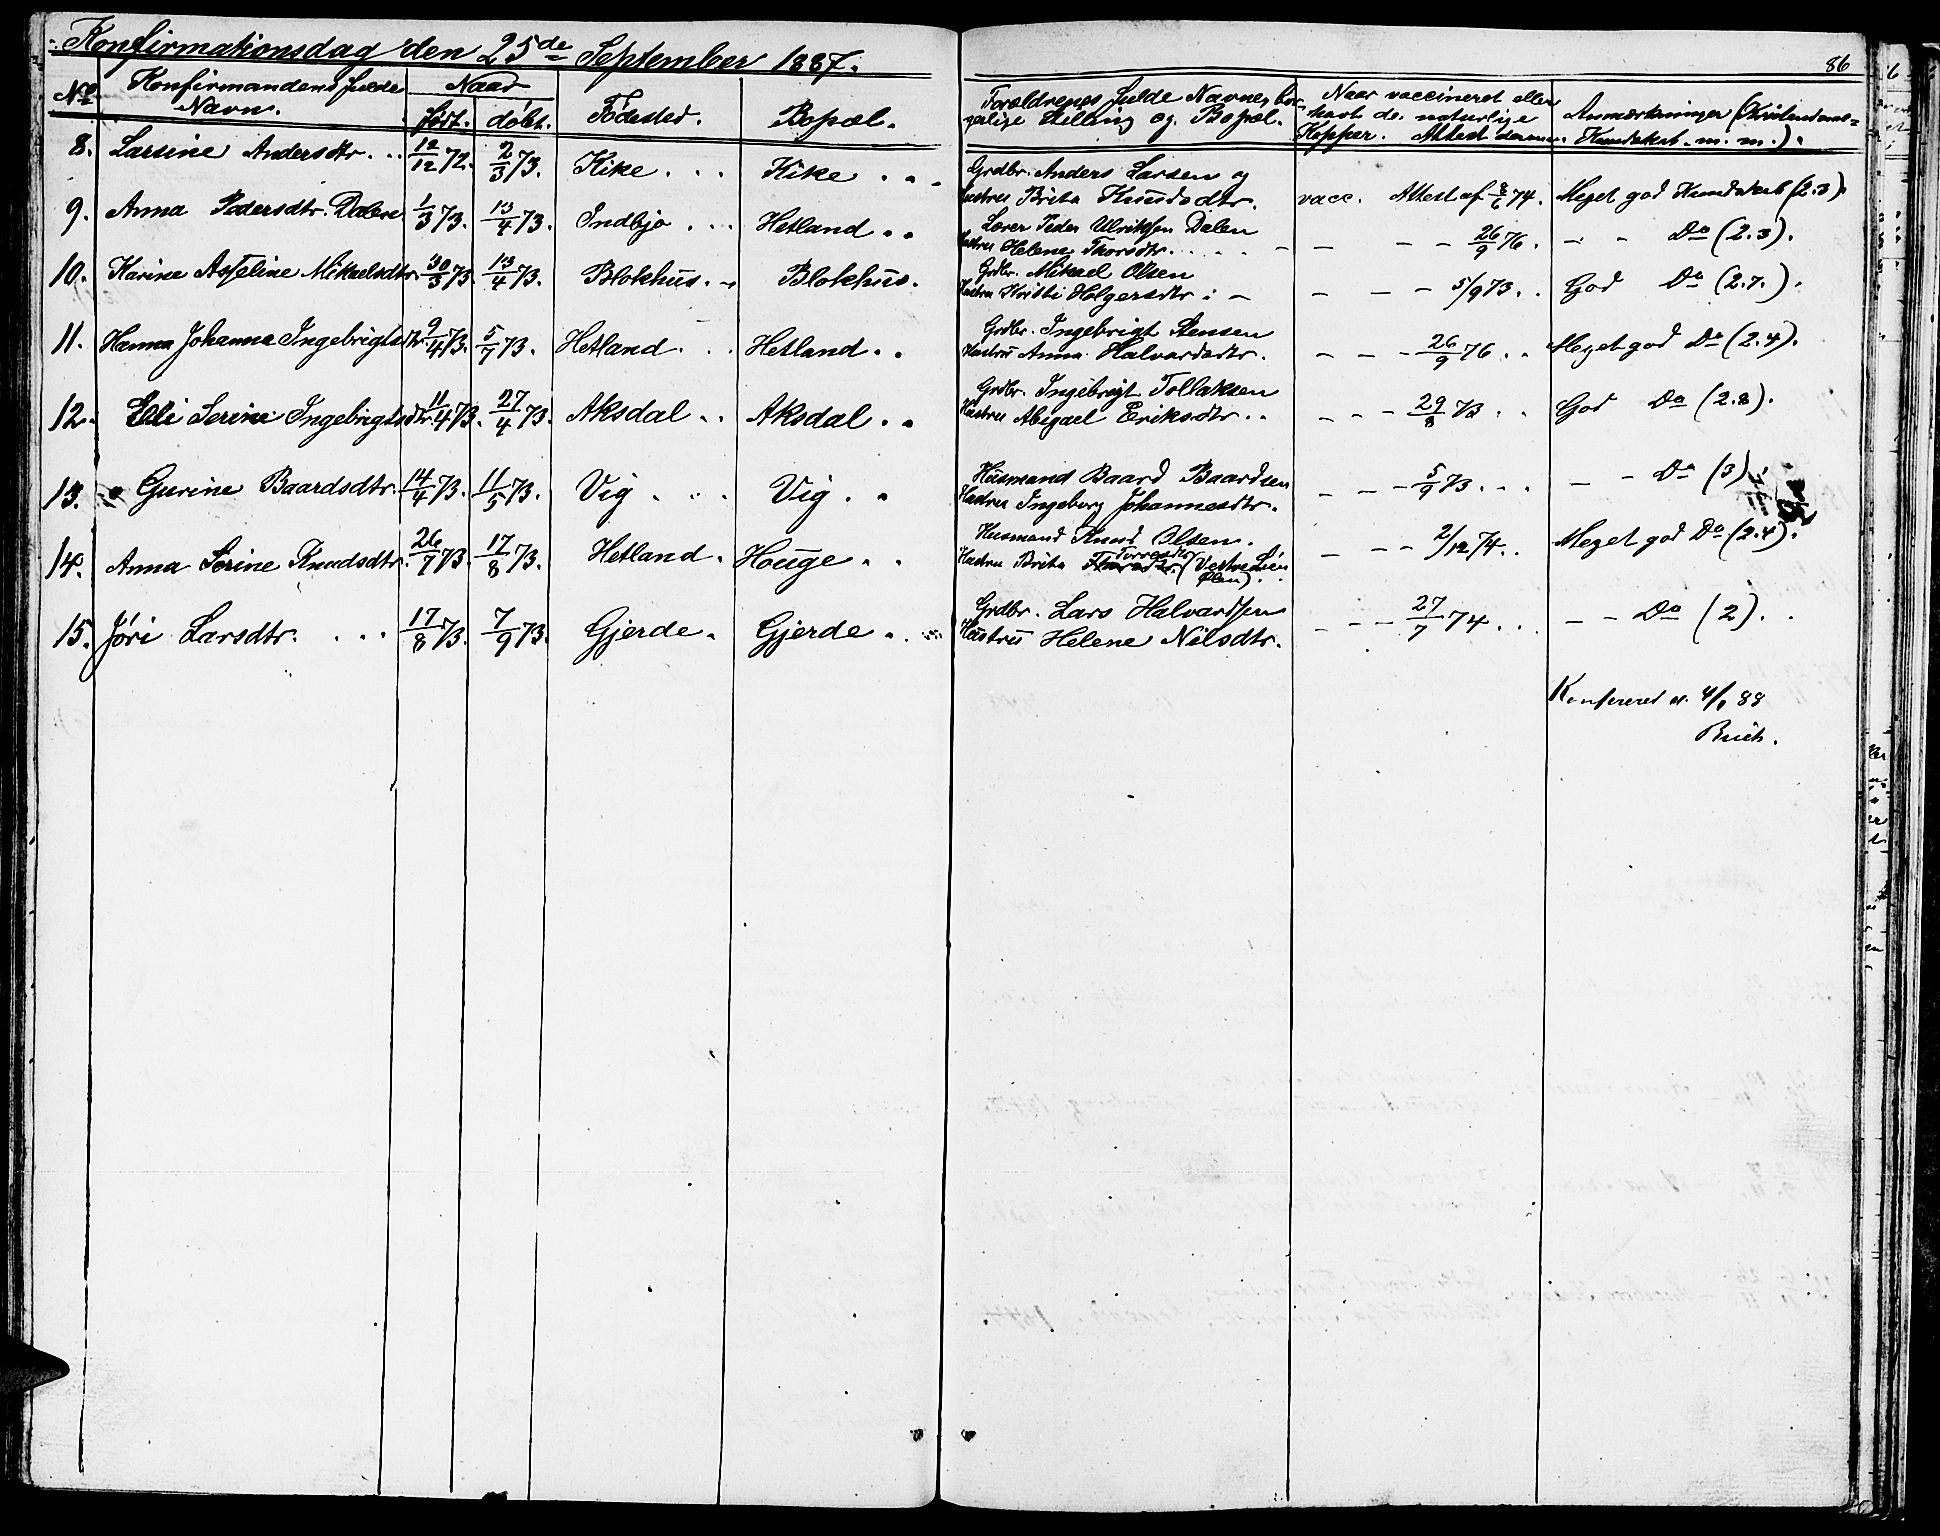 Konfirmationsdag den 25de September 1887.
86
No
Konfirmandens fulde Navn.
Naar
født.
døbt.
Fødested.
Bopæl.
Forældrenes fulde Navne, bor-
gerlige Stilling og Bopæl.
Naar vaccineret eller
havt de naturlige
Kopper. Attest derom.
Anmærkninger (Kristendoms-
Kundskab. m. m.).
8. Larsine Andersdtr. . . 12/12 72. 2/3 73. Kike . . . Kike . . . Grdbr. Anders Larsen og
Hustru Brita Knudsdtr. vacc. Attest af 8/6 74. Meget god Kundskab (2.3).
9. Anna Pedersdtr. Dalen 1/3 73. 13/4 73. Indbjo . . . Hetland . . Lærer Peder Ulriksen Dalen
Hustru Helene Thorsdtr. . . . . - - - - - 26/9 76. - - Do (2.3).
10. Karine Asseline Mikaelsdtr. 30/3 73. 13/4 73. Blokhus. - Blokhus. Grdbr. Mikael Olsen
Hustru Kristi Holgersdtr. - - - - 5/9 73. . God Do (2.7.).
11. Hanna Johanna Ingebrigtsdtr. 9/4 73. 5/7 73. Hetland . . . Hetland . . Grdbr. Ingebrigt Stensen
Hustru Anna Halvardsdtr. - - - 26/9 76. . Meget god Do (2.4).
12. Eli Serine Ingebrigtsdtr. 11/4 73. 27/4 73. Aksdal . . Aksdal . . Grdbr. Ingebrigt Tollaksen
Hustru Abigael Eriksdtr. . . - - - 29/8 73. . God Do (2.8).
13. Gurine Baardsdtr. 14/4 73. 11/5 73. Vig . . . Vig . . Husmand Baard Baardsen
Hustru Ingeborg Johannesdtr. - - - 5/9 73. . . - - Do (3).
14. Anna Serine Knudsdtr. 26/7 73. 17/8 73. Hetland . Houge . . Husmand Knud Olsen.
Torresdtr.
Hustru Brita (Vestre Lien
Ølen). . - - - 2/12 74. . Meget god Do (2.4).
15. Jøri Larsdtr. . . . 17/8 73. 7/9 73. Gjerde . Gjerde . . Grdbr. Lars Halvardsen
Hustru Helene Nilsdtr. - - - 27/7 74. . . - - Do (2). .
Konfereret d. 4/1 88